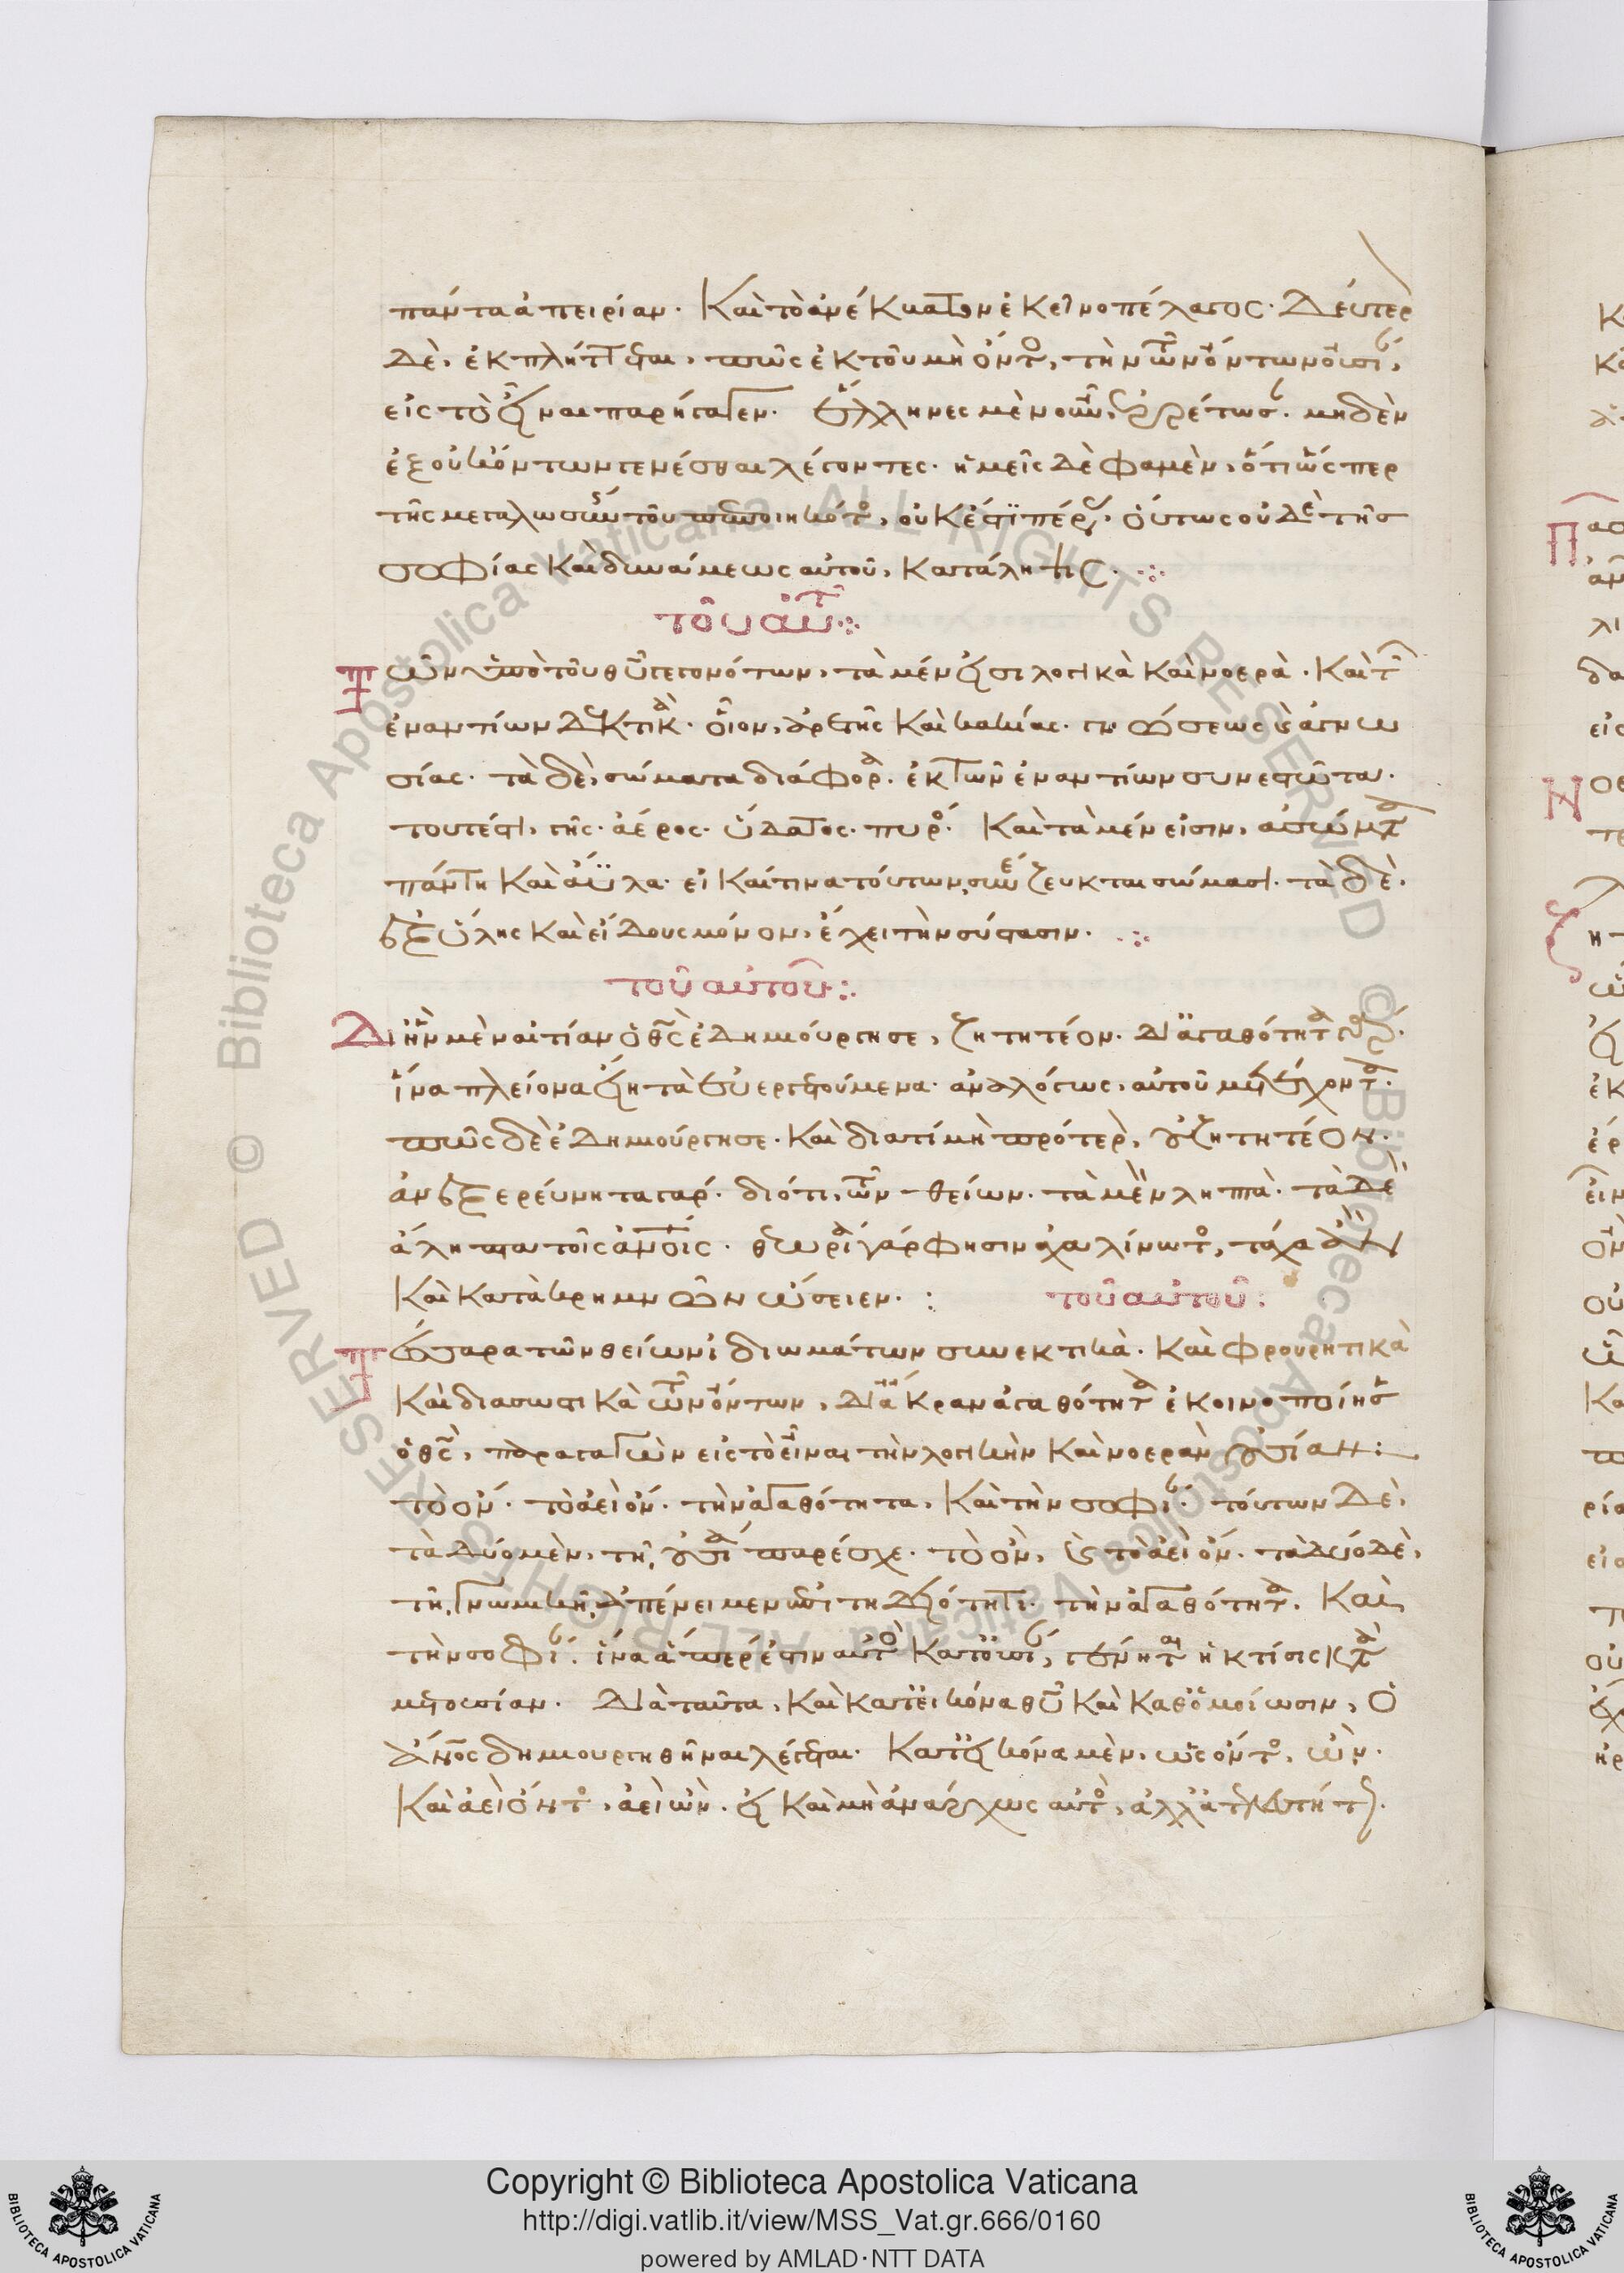 πάντα ἀπειρίαν. Καὶ τὸ ἀνέκβατον ἐκεῖνο πέλαγος. Δεύτερ
δὲ, ἐκπλήττεσθαι, πῶς ἐκ τοῦ μὴ ὄντος, τὴν τῶν ὄντων οὐσίαν,
εἰς τὸ εἶναι παρήγαγεν. Ἕλληνες μὲν οὖν, μηδὲν
ἐξ οὐκ ὄντων γενέσθαι λέγοντες. ἡμεῖς δὲ φαμὲν, ὅτι ὥσπερ
τῆς μεγαλωσύνης τοῦ πεποιηκότος, οὐκ ἔστι πέρας, οὕτως οὐδὲ τῆς
σοφίας καὶ δυνάμεως αὐτοῦ, κατάληψις.
τοῦ αὐτοῦ
Τῶν ὑπὸ τοῦ θυ γεγονότων, τὰ μέν εἰσι λογικὰ καὶ νοερὰ. Καὶ τῶν
ἐναντίων δεκτικὰ. οἷον, ἀρετῆς καὶ κακίας. γνώσεως καὶ ἀγνω
σίας. τὰ δὲ, σώματα διάφορα. ἐκ τῶν ἐναντίων συνεστῶτα.
τουτέστι, γῆς. ἀέρος. ὕδατος. πυρός. Καὶ τὰ μέν εἰσιν, ἀσώματα
πάντη καὶ ἄϋλα. εἰ καί τινα τούτων, συνέζευκται σώμασι. τὰ δὲ.
ἐξ ὕλης καὶ εἴδους μόνον, ἔχει τὴν σύστασιν.
τοῦ αὐτοῦ
Δι' ἣν μὲν αἰτίαν ὁ θς ἐδημιούργησε, ζητητέον. δι' ἀγαθότητα γάρ.
ἵνα πλείονα εἴη τὰ εὐεργετούμενα. ἀναλόγως, αὐτοῦ μετέχοντα.
πῶς δὲ ἐδημιούργησε. Καὶ διατί μὴ πρότερον, οὐ ζητητέον.
ἀνεξερεύνητα γάρ. διότι, τῶν θείων. τὰ μὲν ληπτὰ. τὰ δὲ
ἄληπτα τοῖς ἀνοις. θεωρία γάρ φησιν ἀχαλίνωτος, τάχα ἂν
καὶ κατὰ κρημνῶν ὤσειεν. τοῦ αὐτοῦ
Τέσσαρα τῶν θείων ἰδιωμάτων συνεκτικὰ. Καὶ φρουρητικὰ
Καὶ διασωστικὰ τῶν ὄντων, δι' ἄκραν ἀγαθότητα ἐκοινοποίησεν
ὁ θς, παραγαγὼν εἰς τὸ εἶναι τὴν λογικὴν καὶ νοερὰν οὐσίαν:
τὸ ὄν. τὸ ἀεὶ ὄν. τὴν ἀγαθότητα. Καὶ τὴν σοφίαν. τούτων δὲ,
τὰ δύο μὲν, τῇ οὐσίᾳ παρέσχε. τὸ ὄν, καὶ τὸ ἀεὶ ὄν. τὰ δύο δὲ,
τῇ γνωμικῇ ἀπένειμεν ἐπιτηδειότητι. τὴν ἀγαθότητα. Καὶ
τὴν σοφίαν. ἵνα ἅπερ ἐστὶν αὐτὸς κατ' οὐσίαν, γένηται ἡ κτίσις κατὰ
μετουσίαν. Διὰ ταῦτα, καὶ κατ' εἰκόνα θυ καὶ καθ' ὁμοίωσιν, ὁ
ἄνος δημιουργηθῆναι λέγεται. Κατ' εἰκόνα μὲν, ὡς ὄντος, ὢν.
Καὶ ἀεὶ ὄντος, ἀεὶ ὤν. εἰ καὶ μὴ ἀνάρχως αὐτὸς, ἀλλ' ἀτελευτήτως.
Copyright © Biblioteca Apostolica Vaticana
http://digi.vatlib.it/view/MSS_Vat.gr.666/0160
powered by AMLAD·NTT DATA